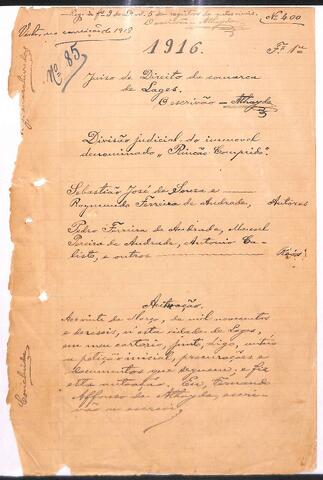 Reg. a fl. 9 do L. nº 5 de registro de autos civis.
O escrivão Athayde
Visto, em correição de 1918
Nº 400
Nº 85
1916.
Fl. 1ª
Juizo de Direito da comarca
de Lages.
O escrivão = Athayde
Divisão judicial do immovel
denominado "Rincão Comprido".
Sebastião José de Souza e
Raymundo Ferreira de Andrade, Autores
Pedro Ferreira de Andrade, Manoel
Pereira de Andrade, Antonio Ca-
listo, e outros
Réos
Autuação.
Aos vinte de Março, de mil novecentos
e deseseis, n'esta cidade de Lages,
em meu cartorio, junto, digo, autúo
a petição inicial, procurações e
documentos que seguem, e fiz
esta autuação. Eu, Fernando
Affonso de Athayde, escri-
vão o escrevi.
Concluida